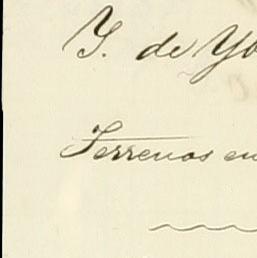 Y. de Yo
Terrenos en